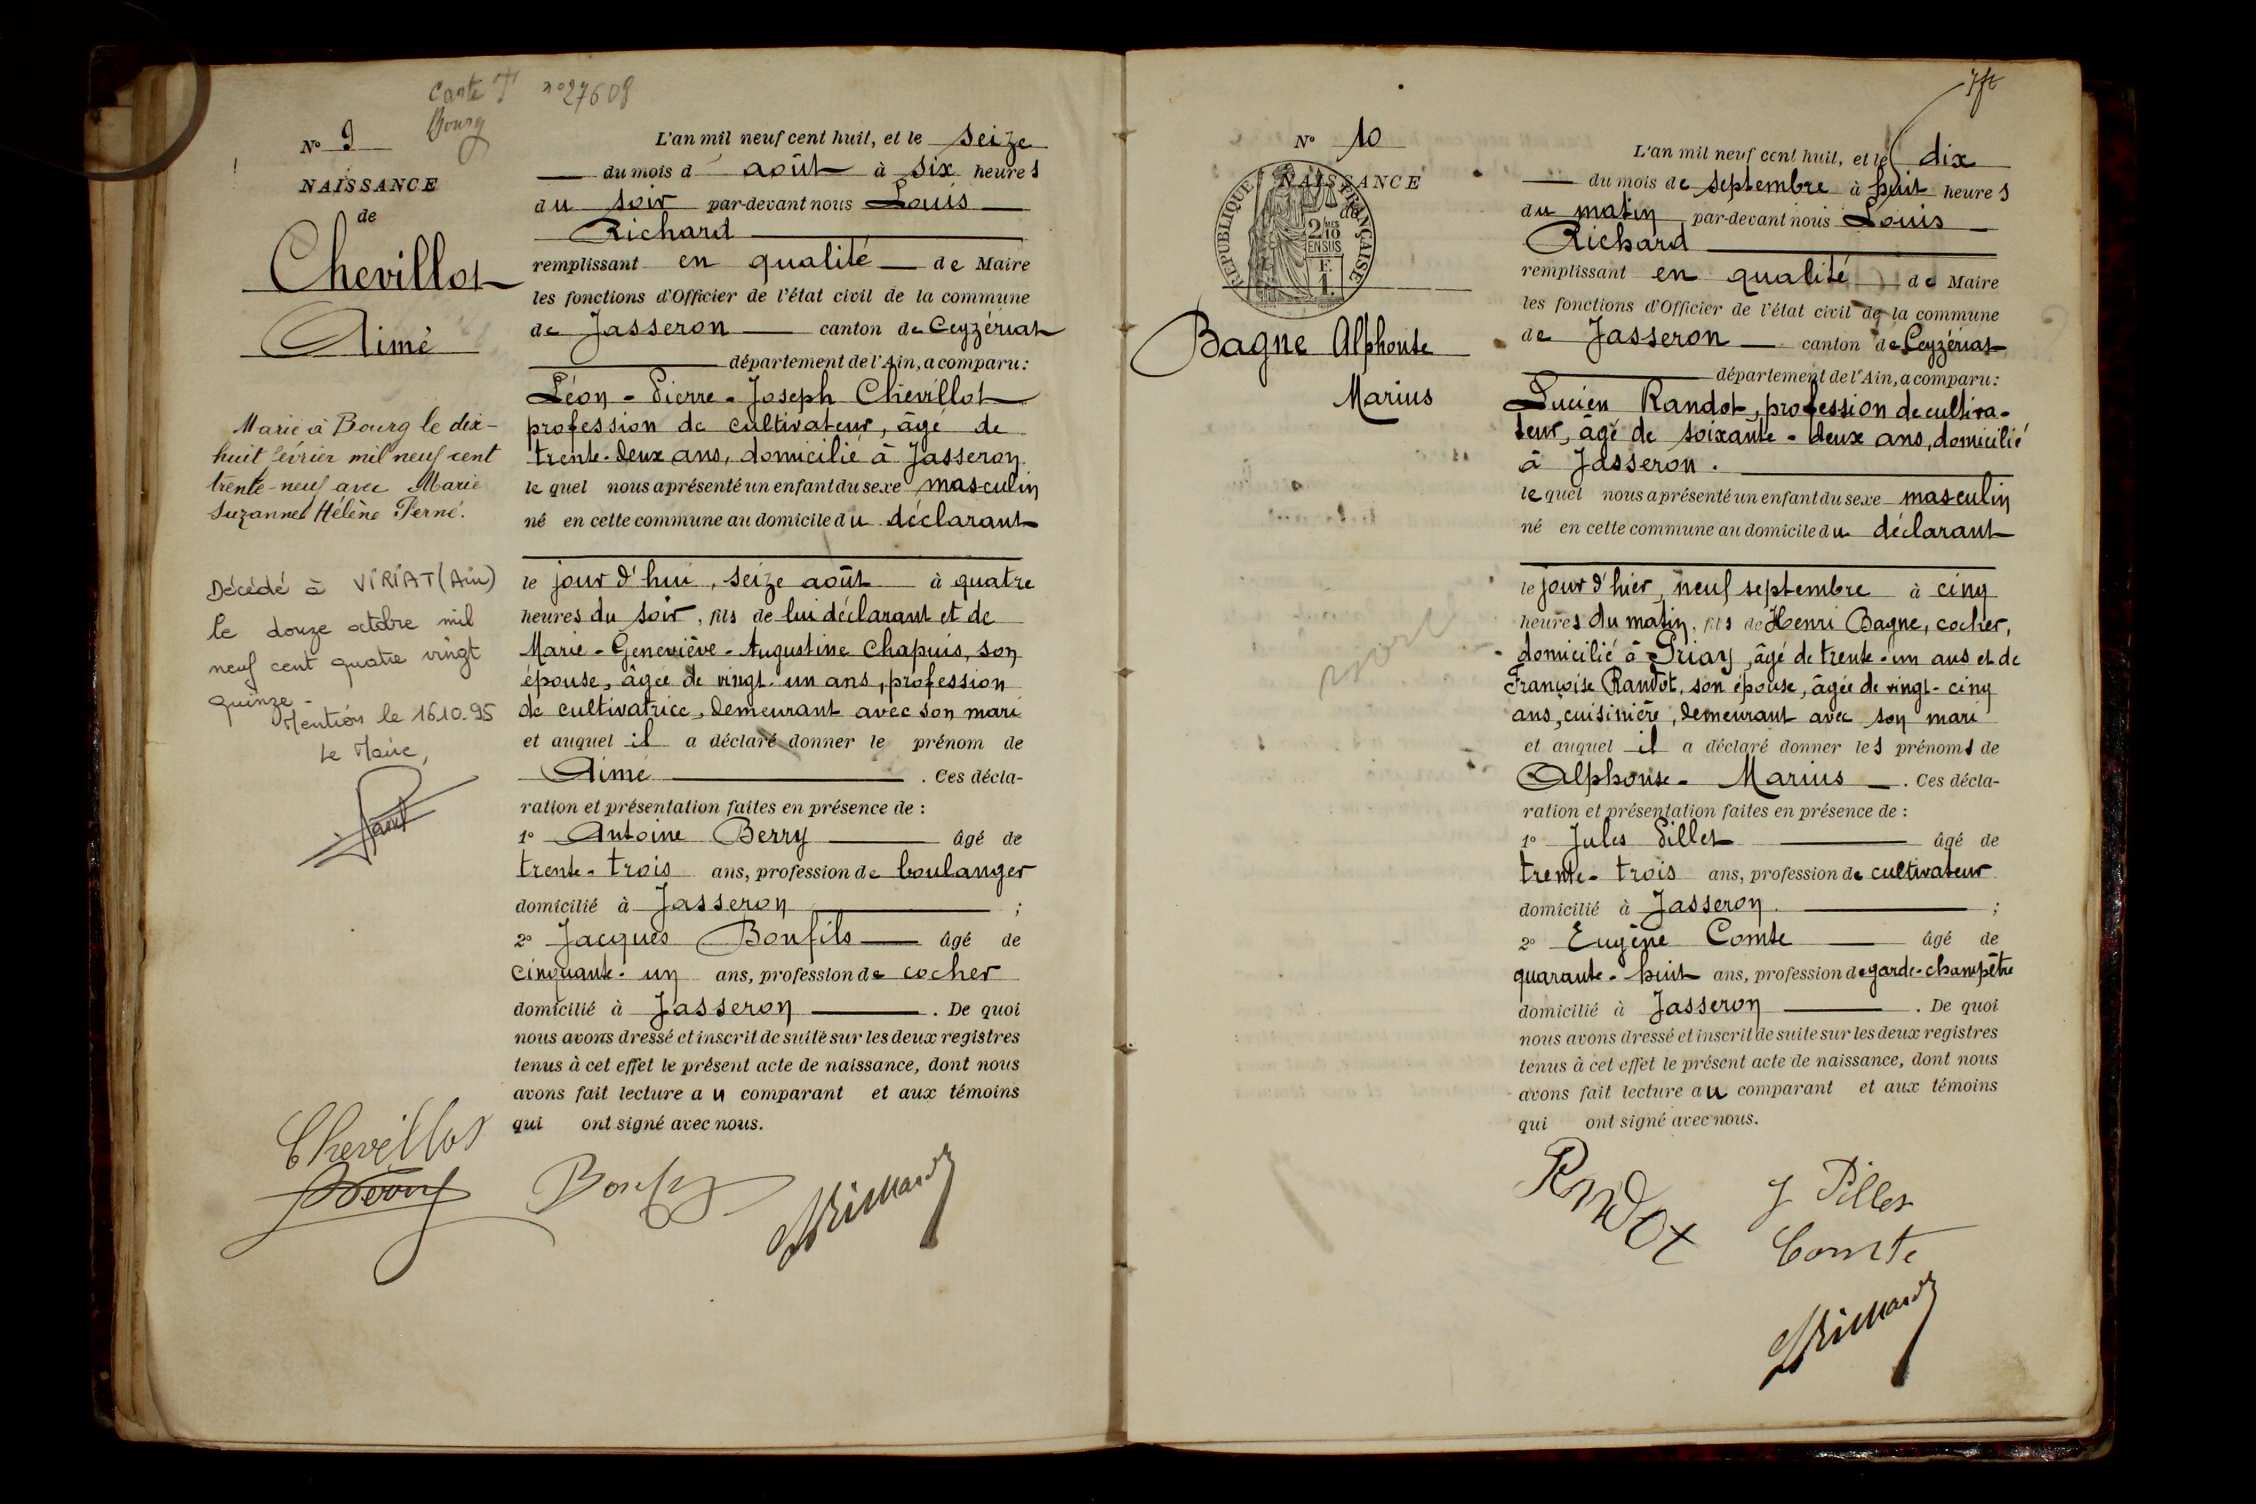 Carte
n° 27608
Bourg
N° 9
NAISSANCE
de
Chevillot
Aimé
Marié à Bourg le dix-
huit février mil neuf cent
trente-neuf avec Marie
Suzanne Hélène Perné.
Décédé à VIRIAT (Ain)
le douze octobre mil
neuf cent quatre vingt
quinze
Mention le 16.10.95
Le Maire,
L'an mil neuf cent huit, et le seize
du mois d août à six heures
du soir par-devant nous Louis
Richard
remplissant en qualité de Maire
les fonctions d'Officier de l'état civil de la commune
de Jasseron canton de Ceyzériat
département de l'Ain, a comparu :
Léon - Pierre - Joseph Chevillot
profession de cultivateur, âgé de
trente-deux ans, domicilié à Jasseron
le quel nous a présenté un enfant du sexe masculin
né en cette commune au domicile du déclarant
le jour d'hui, seize août à quatre
heures du soir, fils de lui déclarant et de
Marie - Geneviève - Augustine Chapuis, son
épouse, âgée de vingt-un ans, profession
de cultivatrice, demeurant avec son mari
et auquel il a déclaré donner le prénom de
Aimé . Ces décla-
ration et présentation faites en présence de :
1° Antoine Berry âgé de
trente-trois ans, profession de boulanger
domicilié à Jasseron ;
2° Jacques Bonfils âgé de
cinquante-un ans, profession de cocher
domicilié à Jasseron . De quoi
nous avons dressé et inscrit de suite sur les deux registres
tenus à cet effet le présent acte de naissance, dont nous
avons fait lecture au comparant et aux témoins
qui ont signé avec nous.
Chevillot
Berry
Bonfils
Richard
N° 10
NAISSANCE
de
REPUBLIQUE FRANÇAISE
2/10
EN SUS
F.
1.
Bagne Alphonse
Marius
L'an mil neuf cent huit, et le dix
du mois de septembre à huit heures
du matin par-devant nous Louis
Richard
remplissant en qualité de Maire
les fonctions d'Officier de l'état civil de la commune
de Jasseron canton de Ceyzériat
département de l'Ain, a comparu :
Lucien Randot, profession de cultiva-
teur, âgé de soixante-deux ans, domicilié
à Jasseron.
le quel nous a présenté un enfant du sexe masculin
né en cette commune au domicile du déclarant
le jour d'hier, neuf septembre à cinq
heures du matin, fils de Henri Bagne, cocher,
domicilié à Priay, âgé de trente-un ans et de
Françoise Randot, son épouse, âgée de vingt-cinq
ans, cuisinière, demeurant avec son mari
et auquel il a déclaré donner les prénoms de
Alphonse - Marius . Ces décla-
ration et présentation faites en présence de :
1° Jules Pillet âgé de
trente-trois ans, profession de cultivateur
domicilié à Jasseron. ;
2° Eugène Comte âgé de
quarante-huit ans, profession de garde-champêtre
domicilié à Jasseron . De quoi
nous avons dressé et inscrit de suite sur les deux registres
tenus à cet effet le présent acte de naissance, dont nous
avons fait lecture au comparant et aux témoins
qui ont signé avec nous.
Randot
J Pillet
Comte
Richard